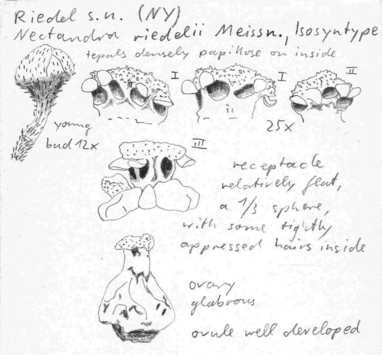 Riedel s.n. (NY)
Nectandra riedelii Meissn., Isosyntype
tepals densely papillose on inside
I
I
II
young
bud 12x
25x
III
receptacle
relatively flat,
a 1/3 sphere,
with some tightly
appressed hairs inside
ovary
glabrous
ovule well developed